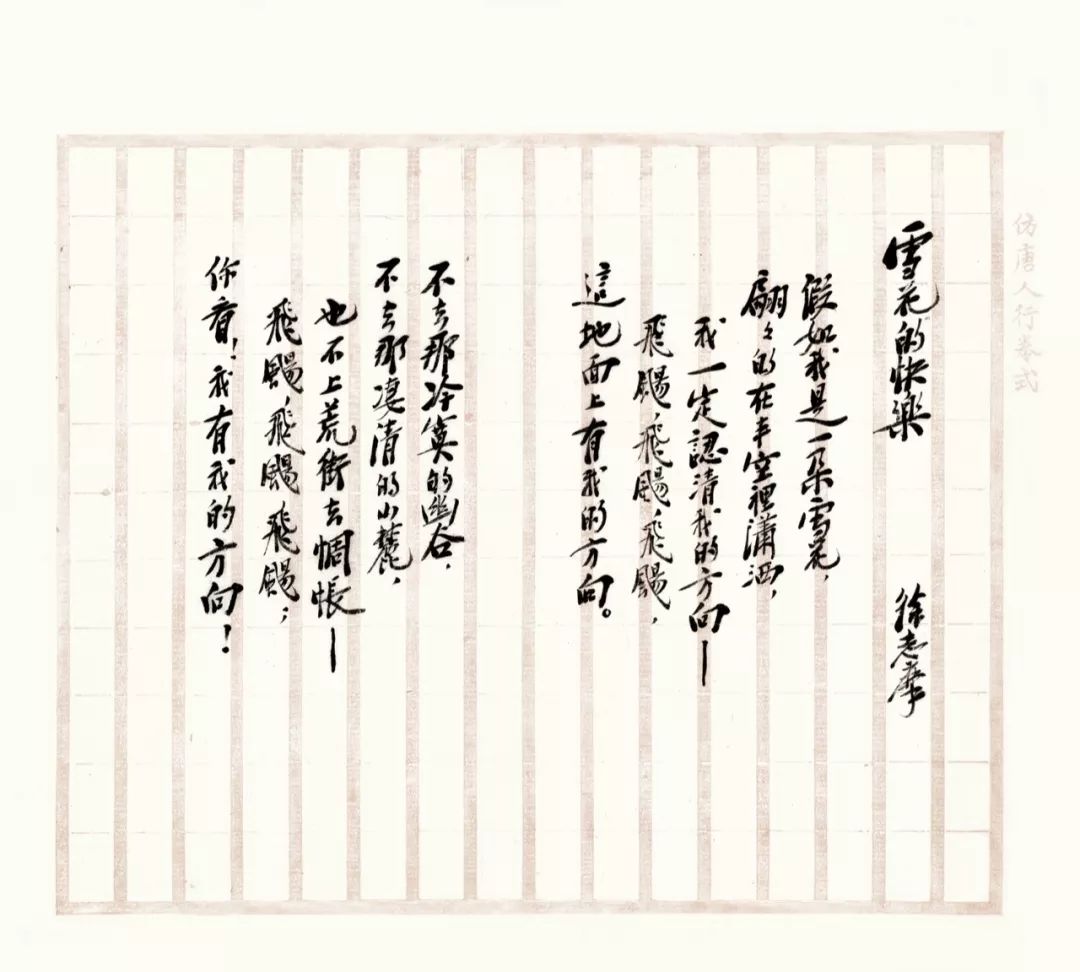 仿唐人行卷式
雪花的快樂
徐志摩
假如我是一朵雪花，
翩々的在半空裡瀟洒，
我一定認清我的方向—
飛颺，飛颺，飛颺，
這地面上有我的方向。
不去那冷寞的幽谷，
不去那淒清的山麓，
也不上荒街去惆悵—
飛颺，飛颺，飛颺；
你看！我有我的方向！